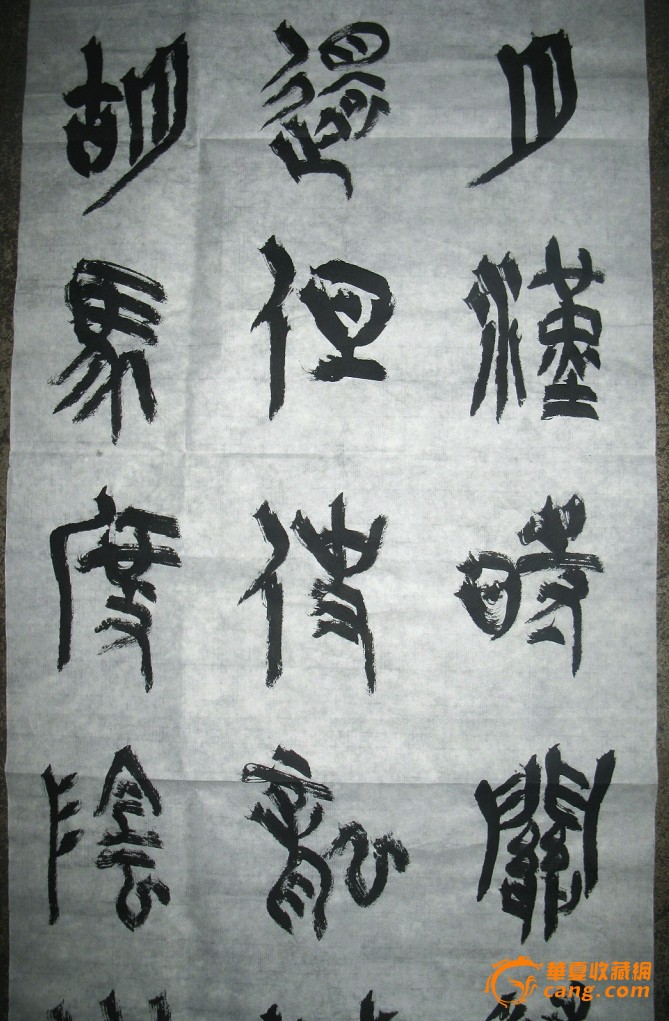 月漢時關
還但使龍
胡馬度陰
華夏收藏網
cang.com